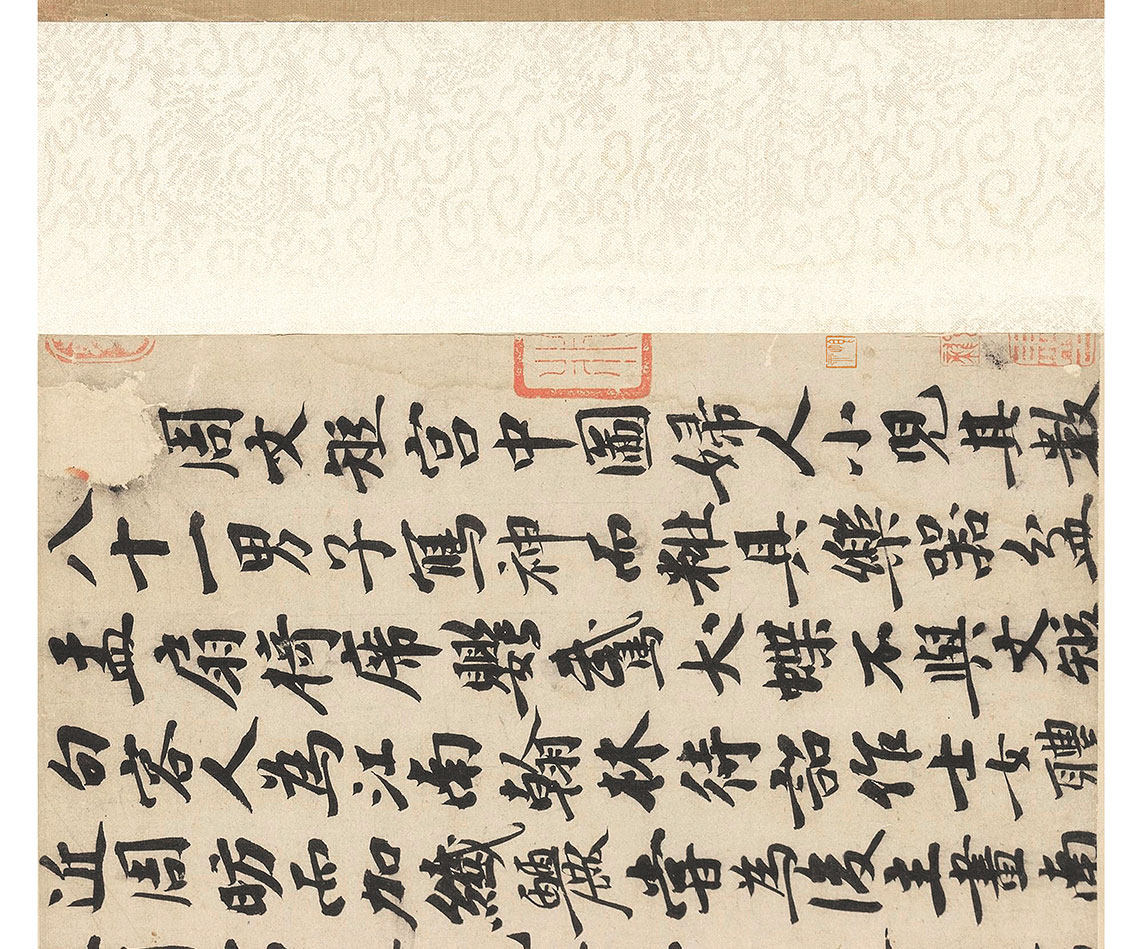 周文矩宮中圖婦人小兒其數
八十一男子寫神而粧具樂器盆
盂扇椅席鸚鵡犬蝶不與文矩
句容人為江南翰林待詔作士女體
近周昉而加纖麗嘗為後主畫南